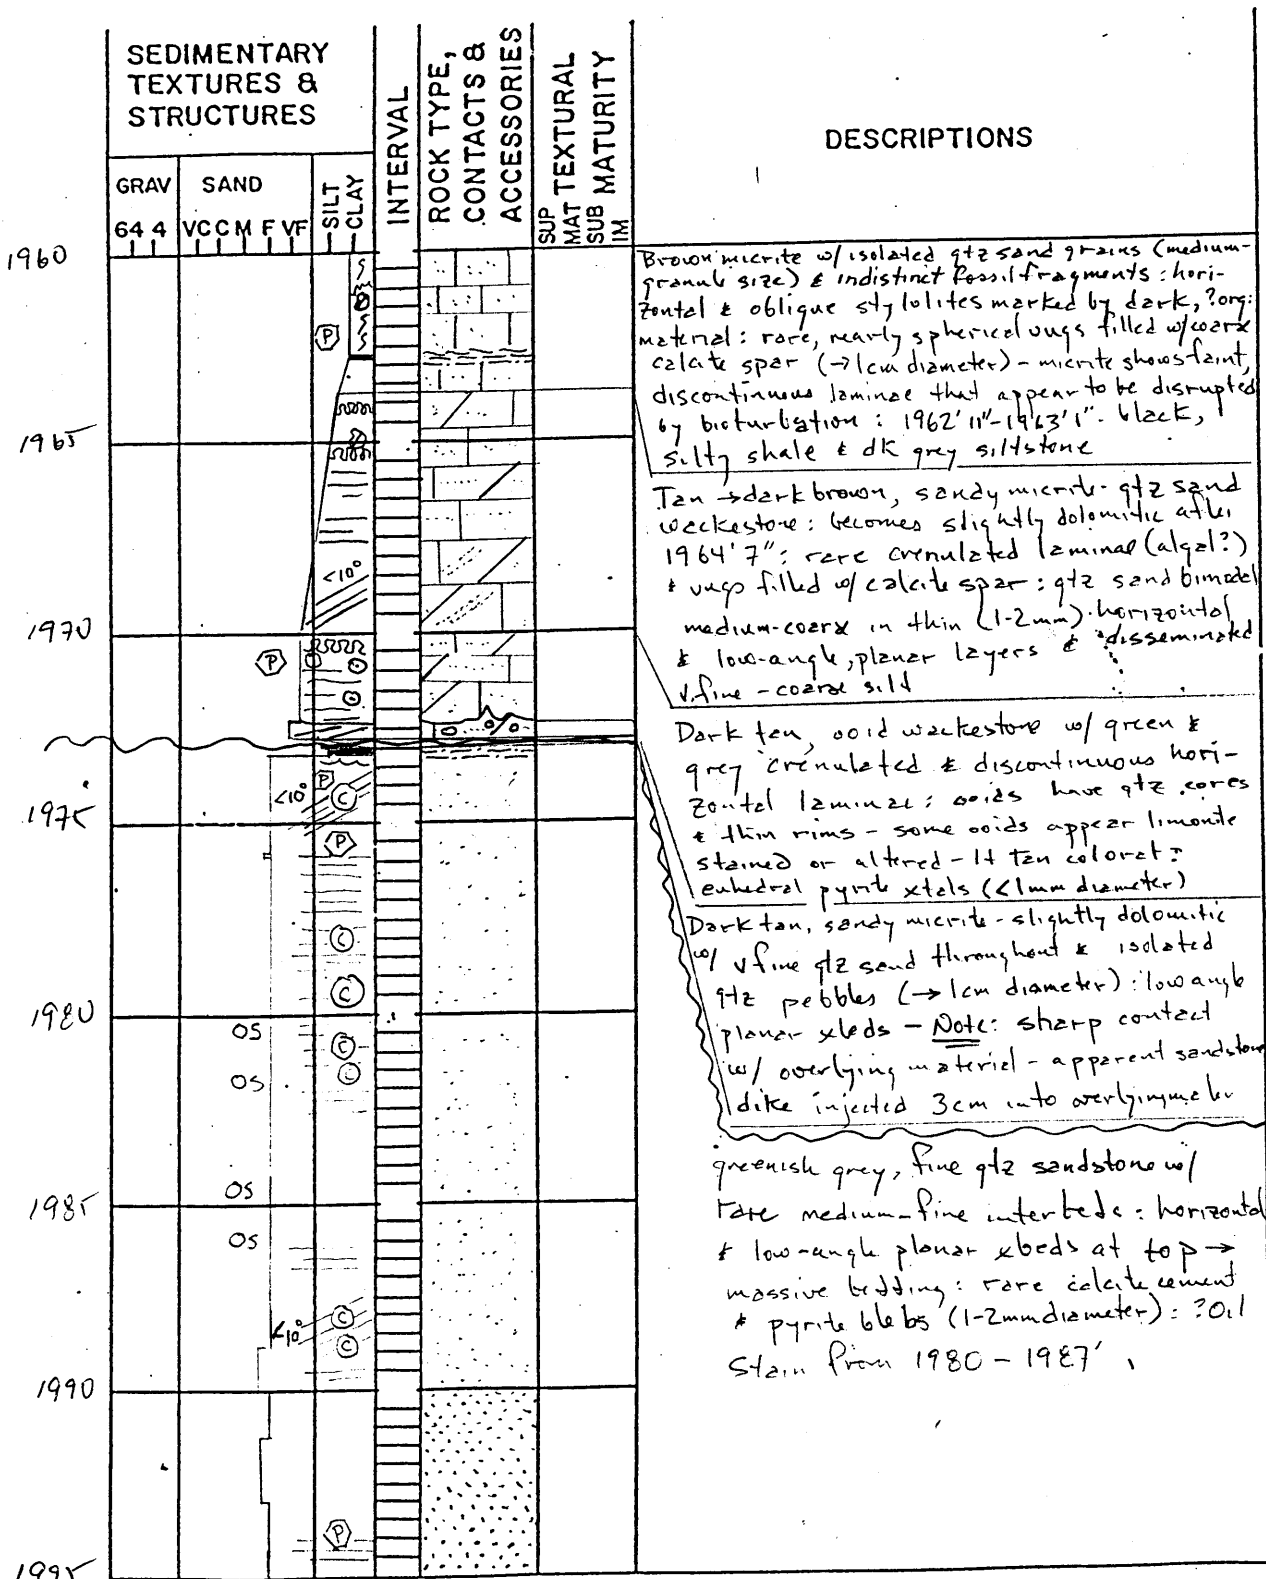 SEDIMENTARY
TEXTURES &
STRUCTURES
GRAV SAND
SILT
CLAY
64 4 VC C M F VF
INTERVAL
ROCK TYPE,
CONTACTS &
ACCESSORIES
TEXTURAL
MATURITY
SUP
MAT
SUB
IM
DESCRIPTIONS
1960
Brown micrite w/ isolated qtz sand grains (medium-
granule size) & indistinct fossil fragments : hori-
zontal & oblique stylolites marked by dark, ?org.
material : rare, nearly spherical vugs filled w/ coarse
calcite spar (→1cm diameter) - micrite shows faint,
discontinuous laminae that appear to be disrupted
by bioturbation : 1962' 11"-1963' 1". black,
silty shale & dk grey siltstone
P
1965
Tan → dark brown, sandy micrite - qtz sand
wackestone : becomes slightly dolomitic after
1964' 7" : rare crenulated laminae (algal?)
& vugs filled w/ calcite spar : qtz sand bimodal
medium-coarse in thin (1-2mm) horizontal
& low-angle, planar layers & disseminated
v. fine - coarse silt
<10°
1970
P
Dark tan, ooid wackestone w/ green &
grey crenulated & discontinuous hori-
zontal laminae : ooids have qtz cores
& thin rims - some ooids appear limonite
stained or altered - lt tan colorat :
euhedral pyrite xtals (<1mm diameter)
P
<10° C
1975
P
Dark tan, sandy micrite - slightly dolomitic
w/ v fine qtz sand throughout & isolated
qtz pebbles (→ 1cm diameter) : low angle
planar xbeds - Note: sharp contact
w/ overlying material - apparent sandstone
dike injected 3cm into overlying
C
C
1980
OS C
OS C
greenish grey, fine qtz sandstone w/
rare medium-fine interbeds : horizontal
& low-angle planar xbeds at top →
massive bedding : rare calcite cement
& pyrite blebs (1-2mm diameter) : ?Oil
Stain from 1980 - 1987'
OS
1985
OS
C
<10° C
1990
P
1995